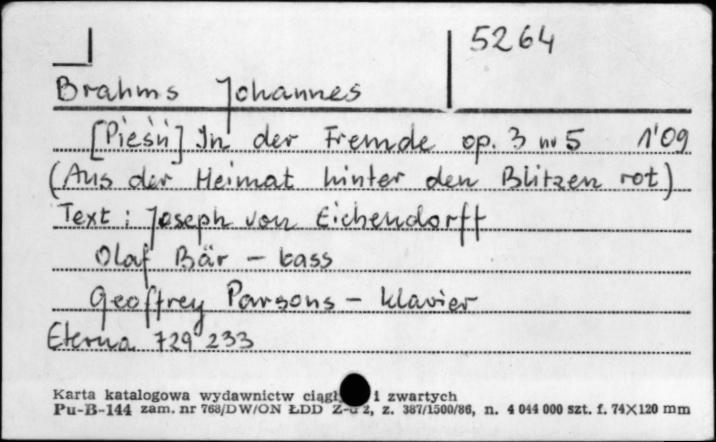 5264
Brahms Johannes
[Pieśń] In der Fremde op. 3 nr 5 1'09
(Aus der Heimat hinter den Blitzen rot)
Text: Joseph von Eichendorff
Olaf Bär – bass
Geoffrey Parsons – klavier
Eterna 729 233
Karta katalogowa wydawnictw i zwartych
Pu-B-144 zam. nr 768/DW/ON ŁDD 2, z. 387/1500/86, n. 4 044 000 szt. f. 74X120 mm